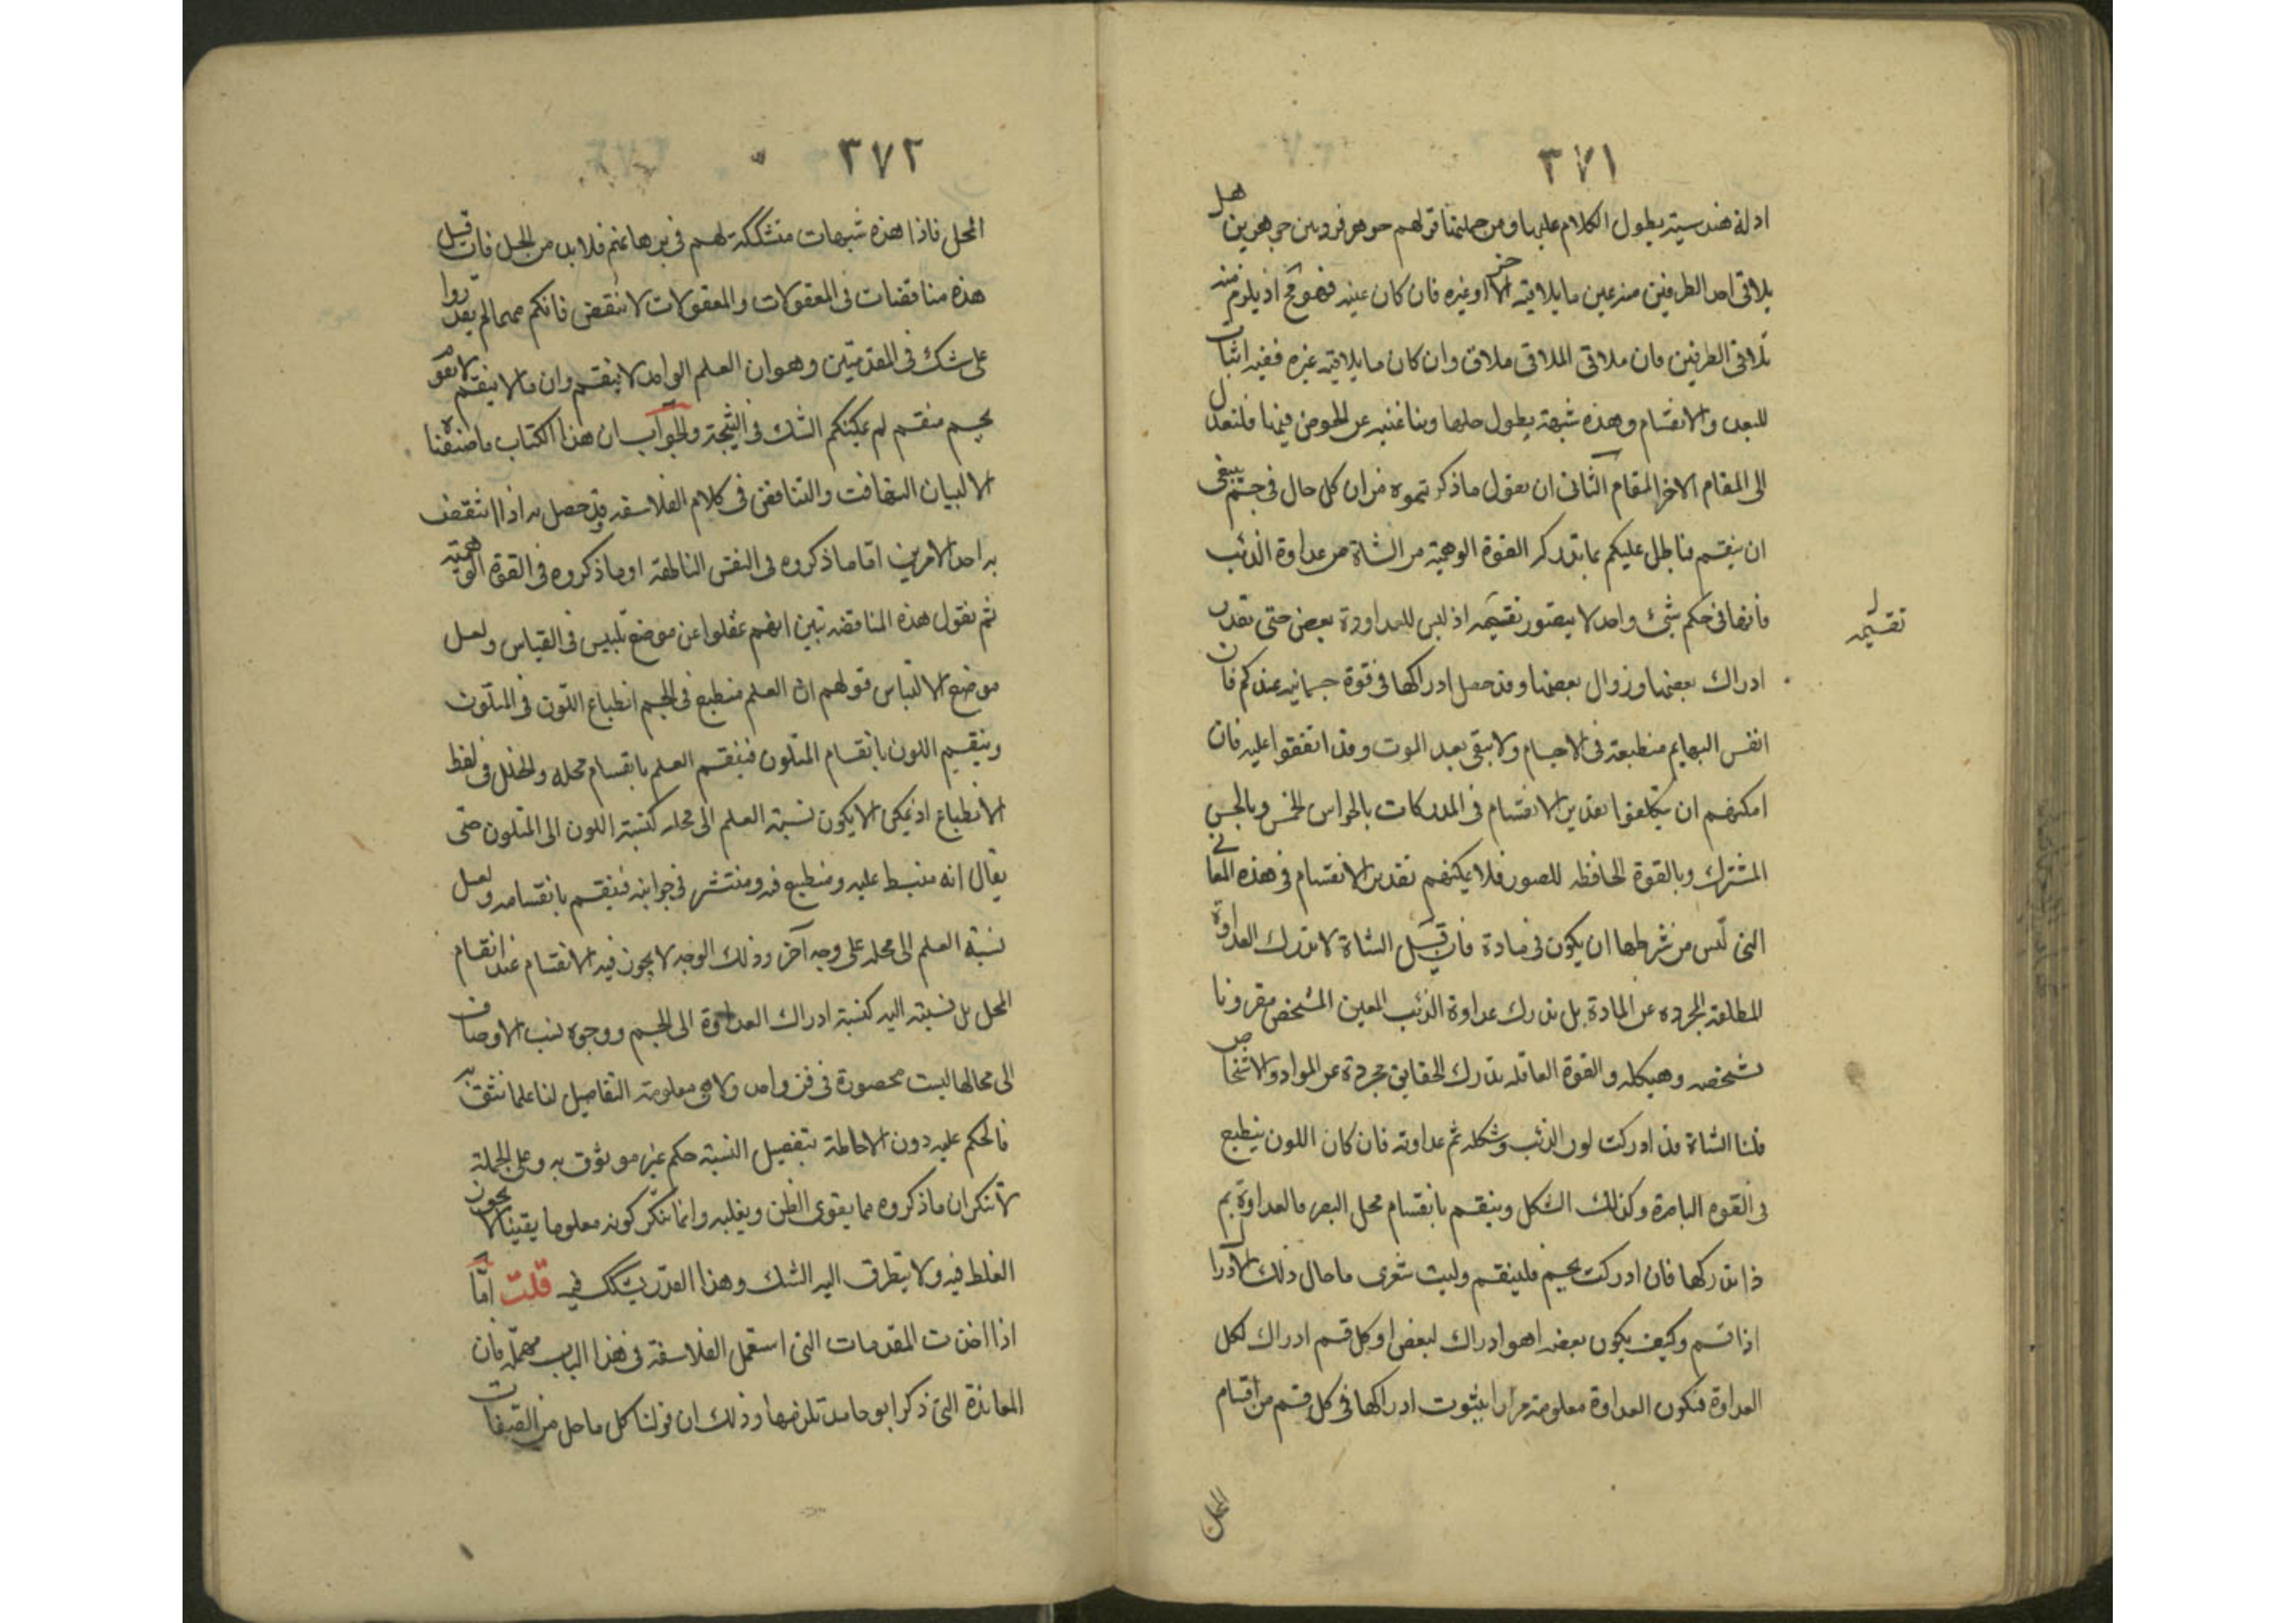 ٣٧١
ادلة هندسية يطول الكلام عليها ومن جملتها قولهم جوهر فرد بين جوهرين هل
يلاقي احد الطرفين منه عين ما يلاقيه الاخر او غيره فان كان عينه فهو مح اذ يلزم منه
تلاقي الطرفين فان ملاقي الملاقي ملاق وان كان ما يلاقيه غيره ففيه اثبات
للتعدد والانقسام وهذه شبهة يطول حلها وبنا غنية عن الخوض فيها فلنعدل
الى المقام الاخر المقام الثاني ان نقول ما ذكرتموه من ان كل حال في جسم ينبغي
ان ينقسم فباطل عليكم بما تدركه القوة الوهمية من الشاة من عداوة الذئب
فانها في حكم شئ واحد لا يتصور تقسيمه اذ ليس للعداوة بعض حتى تقدر
تقسيمه
ادراك بعضها وزوال بعضها وقد حصل ادراكها في قوة جسمانية عندكم فان
انفس البهايم منطبعة في الاجسام ولا تبقى بعد الموت وقد اتفقوا عليه فان
امكنهم ان يتكلفوا تقدير الانقسام في المدركات بالحواس الخمس وبالحس
المشترك وبالقوة الحافظه للصور فلا يمكنهم تقدير الانقسام في هذه المعاني
التي ليس من شرطها ان يكون في مادة فان قيل الشاة لا تدرك العداوة
المطلقة المجرده عن المادة بل تدرك عداوة الذئب المعين المشخص مقرونا
بشخصه وهيكله والقوة العاقله تدرك الحقايق مجردة عن المواد والاشخاص
قلنا الشاة قد ادركت لون الذئب وشكله ثم عداوته فان كان اللون ينطبع
في القوه الباصرة وكذلك الشكل وينقسم بانقسام محل البصر فالعداوة بم
ذا تدركها فان ادركت بجسم فلينقسم وليت شعري ما حال ذلك الادراك
اذا قسم وكيف يكون بعضه اهو ادراك لبعض او كل قسم ادراك لكل
العداوة فتكون العداوة معلومة مرارا بثبوت ادراكها في كل قسم من اقسام
المحل
٣٧٢
المحل فاذا هذه شبهات متشككة لهم في برهانهم فلا بد من الحل فان قيل
هذه مناقضات في المعقولات والمعقولات لا تنقض فانكم مهما لم تقدروا
على شك في المقدمتين وهو ان العلم الواحد لا ينقسم وان ما لا ينقسم لا يقوم
بجسم منقسم لم يمكنكم الشك في النتيجة والجواب ان هذا الكتاب ما صنفناه
الا لبيان التهافت والتناقض في كلام الفلاسفه وقد حصل به اذا انتقض
به احد الامرين اما ما ذكروه في النفس الناطقة او ما ذكروه في القوة الوهمية
ثم نقول هذه المناقضه تبين انهم غفلوا عن موضع تلبيس في القياس ولعل
موضع الالتباس قولهم ان العلم منطبع في الجسم انطباع اللون في المتلون
وينقسم اللون بانقسام المتلون فينقسم العلم بانقسام محله والخلل في لفظ
الانطباع اذ يمكن الا يكون نسبة العلم الى محله كنسبة اللون الى المتلون حتى
يقال انه منبسط عليه ومنطبع فيه ومنتشر في جوانبه فينقسم بانقسامه ولعل
نسبة العلم الى محله على وجه آخر وذلك الوجه لا يجوز فيه الانقسام عند انقسام
المحل بل نسبته اليه كنسبة ادراك العداوة الى الجسم ووجوه نسب الاوصاف
الى محالها ليست محصورة في فن واحد ولا هي معلومة التفاصيل لنا علما نثق به
فالحكم عليه دون الاحاطة بتفصيل النسبة حكم غير موثوق به وعلى الجملة
لا ننكر ان ما ذكروه مما يقوى الظن ويغلبه وانما ننكر كونه معلوما يقينا لا يجوز
الغلط فيه ولا يتطرق اليه الشك وهذا القدر يشكك فيه قلت اما
اذا اخذت المقدمات التي استعمل الفلاسفة في هذا الباب مهملة فان
المعاندة التي ذكر ابو حامد تلزمها وذلك ان قولنا كل ما حل من الصفات